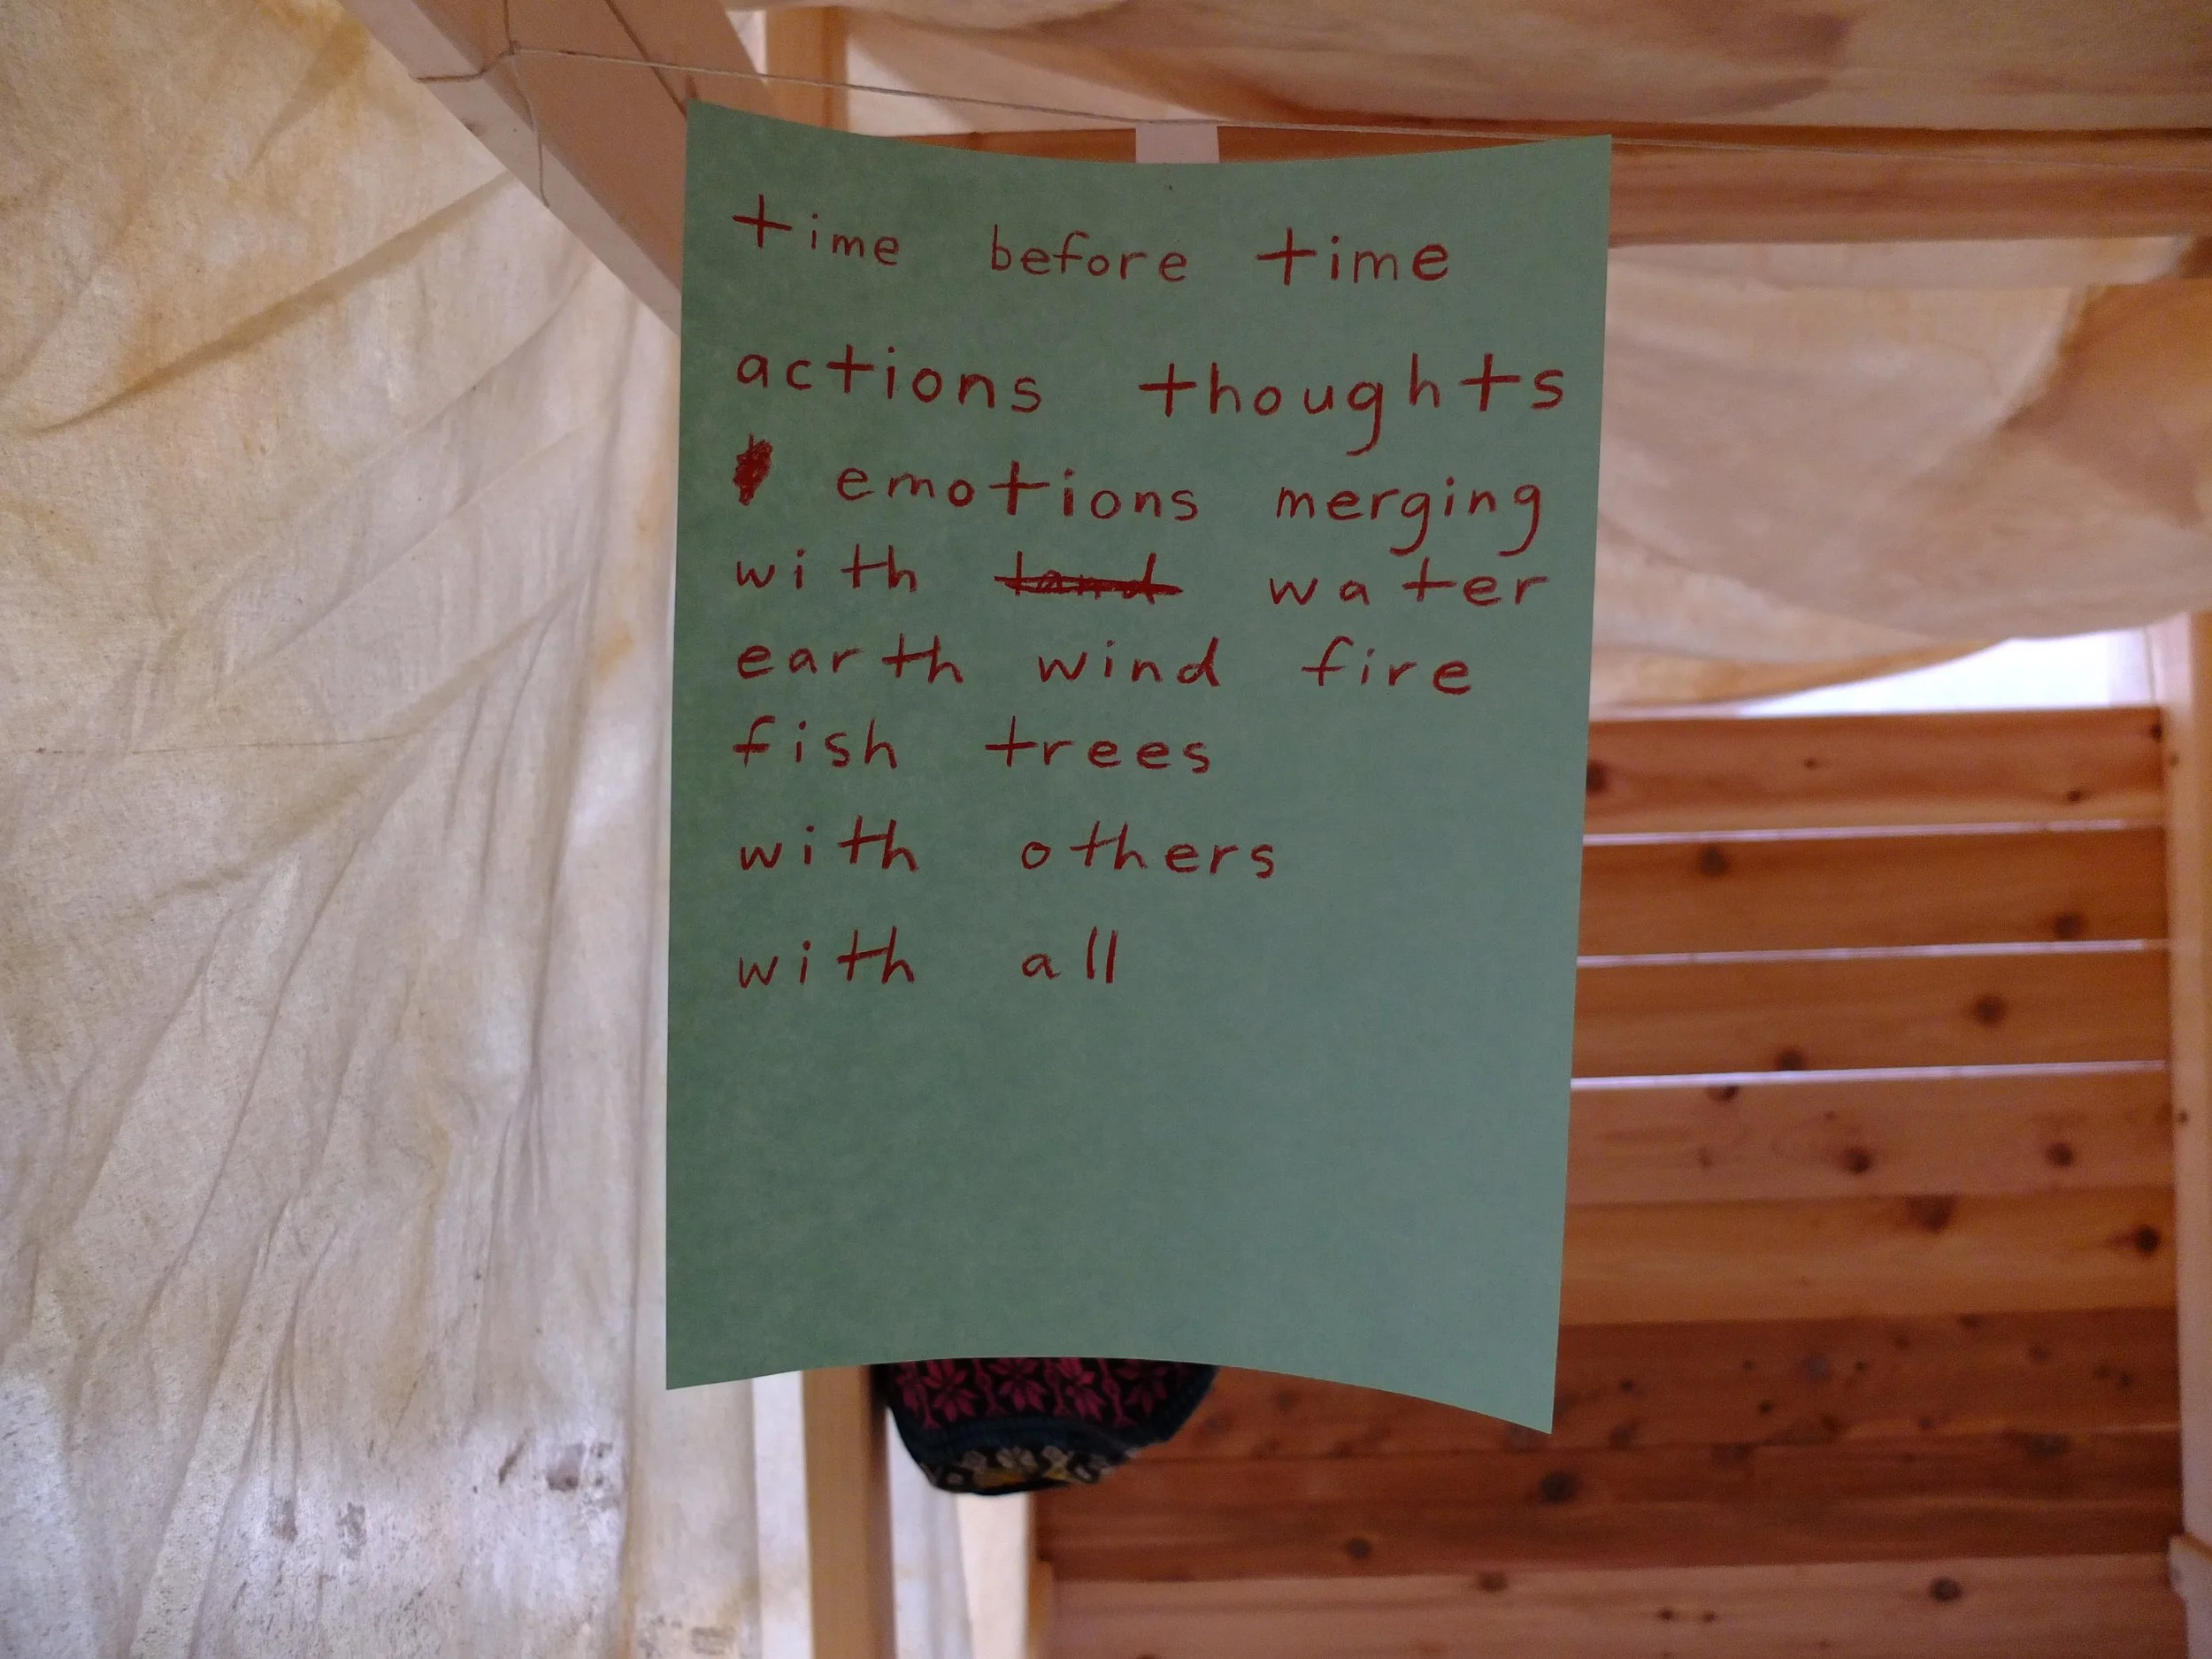 time before time
actions thoughts
emotions merging
with water
earth wind fire
fish trees
with others
with all